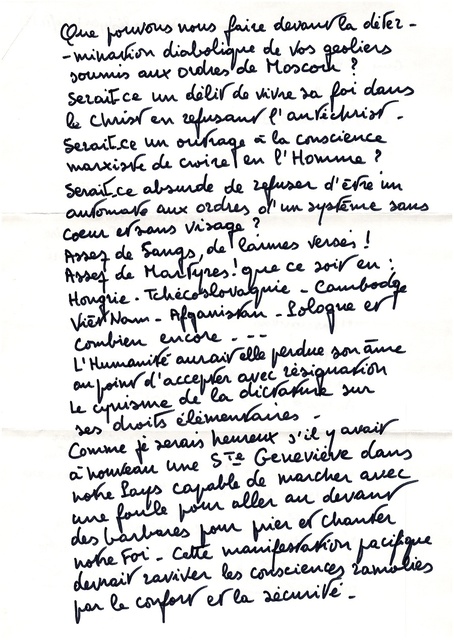 Que pouvons nous faire devant la déter-
-mination diabolique de vos geoliers
soumis aux ordres de Moscou ?
Serait-ce un délit de vivre sa foi dans
le Christ en refusant l'antichrist -
Serait-ce un outrage à la conscience
marxiste de croire en l'Homme ?
Serait-ce absurde de refuser d'être un
automate aux ordres d'un système sans
coeur et sans visage ?
Assez de Sangs, de larmes versés !
Assez de Martyres ! que ce soit en :
Hongrie - Tchécoslovaquie - Cambodge
Viêt Nam - Afganistan - Pologne et
combien encore - - -
L'Humanité aurait elle perdue son âme
au point d'accepter avec résignation
le cynisme de la dictature sur
ses droits élémentaires -
Comme je serais heureux s'il y avait
à nouveau une Ste Geneviève dans
notre Pays capable de marcher avec
une foule pour aller au devant
des barbares pour prier et chanter
notre Foi - Cette manifestation pacifique
devrait raviver les consciences ramolies
par le confort et la sécurité -